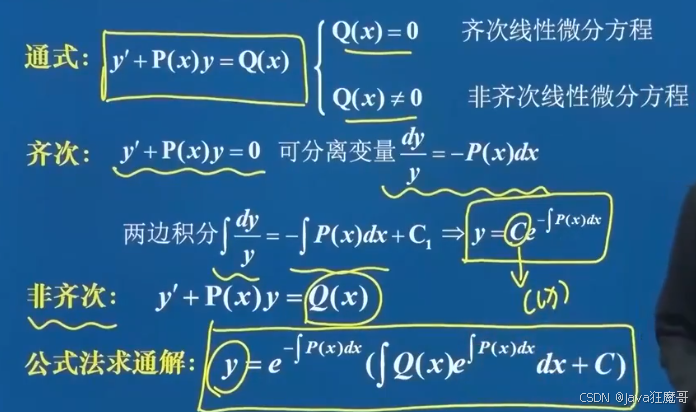 通式： y′+P(x)y=Q(x) { Q(x)=0 齐次线性微分方程
Q(x)≠0 非齐次线性微分方程
齐次： y′+P(x)y=0 可分离变量 dy/y=-P(x)dx
两边积分∫dy/y=-∫P(x)dx+C₁ ⇒ y=Ce^{-∫P(x)dx}
非齐次： y′+P(x)y=Q(x)
公式法求通解： y=e^{-∫P(x)dx}(∫Q(x)e^{∫P(x)dx}dx+C)
CSDN @java狂魔哥